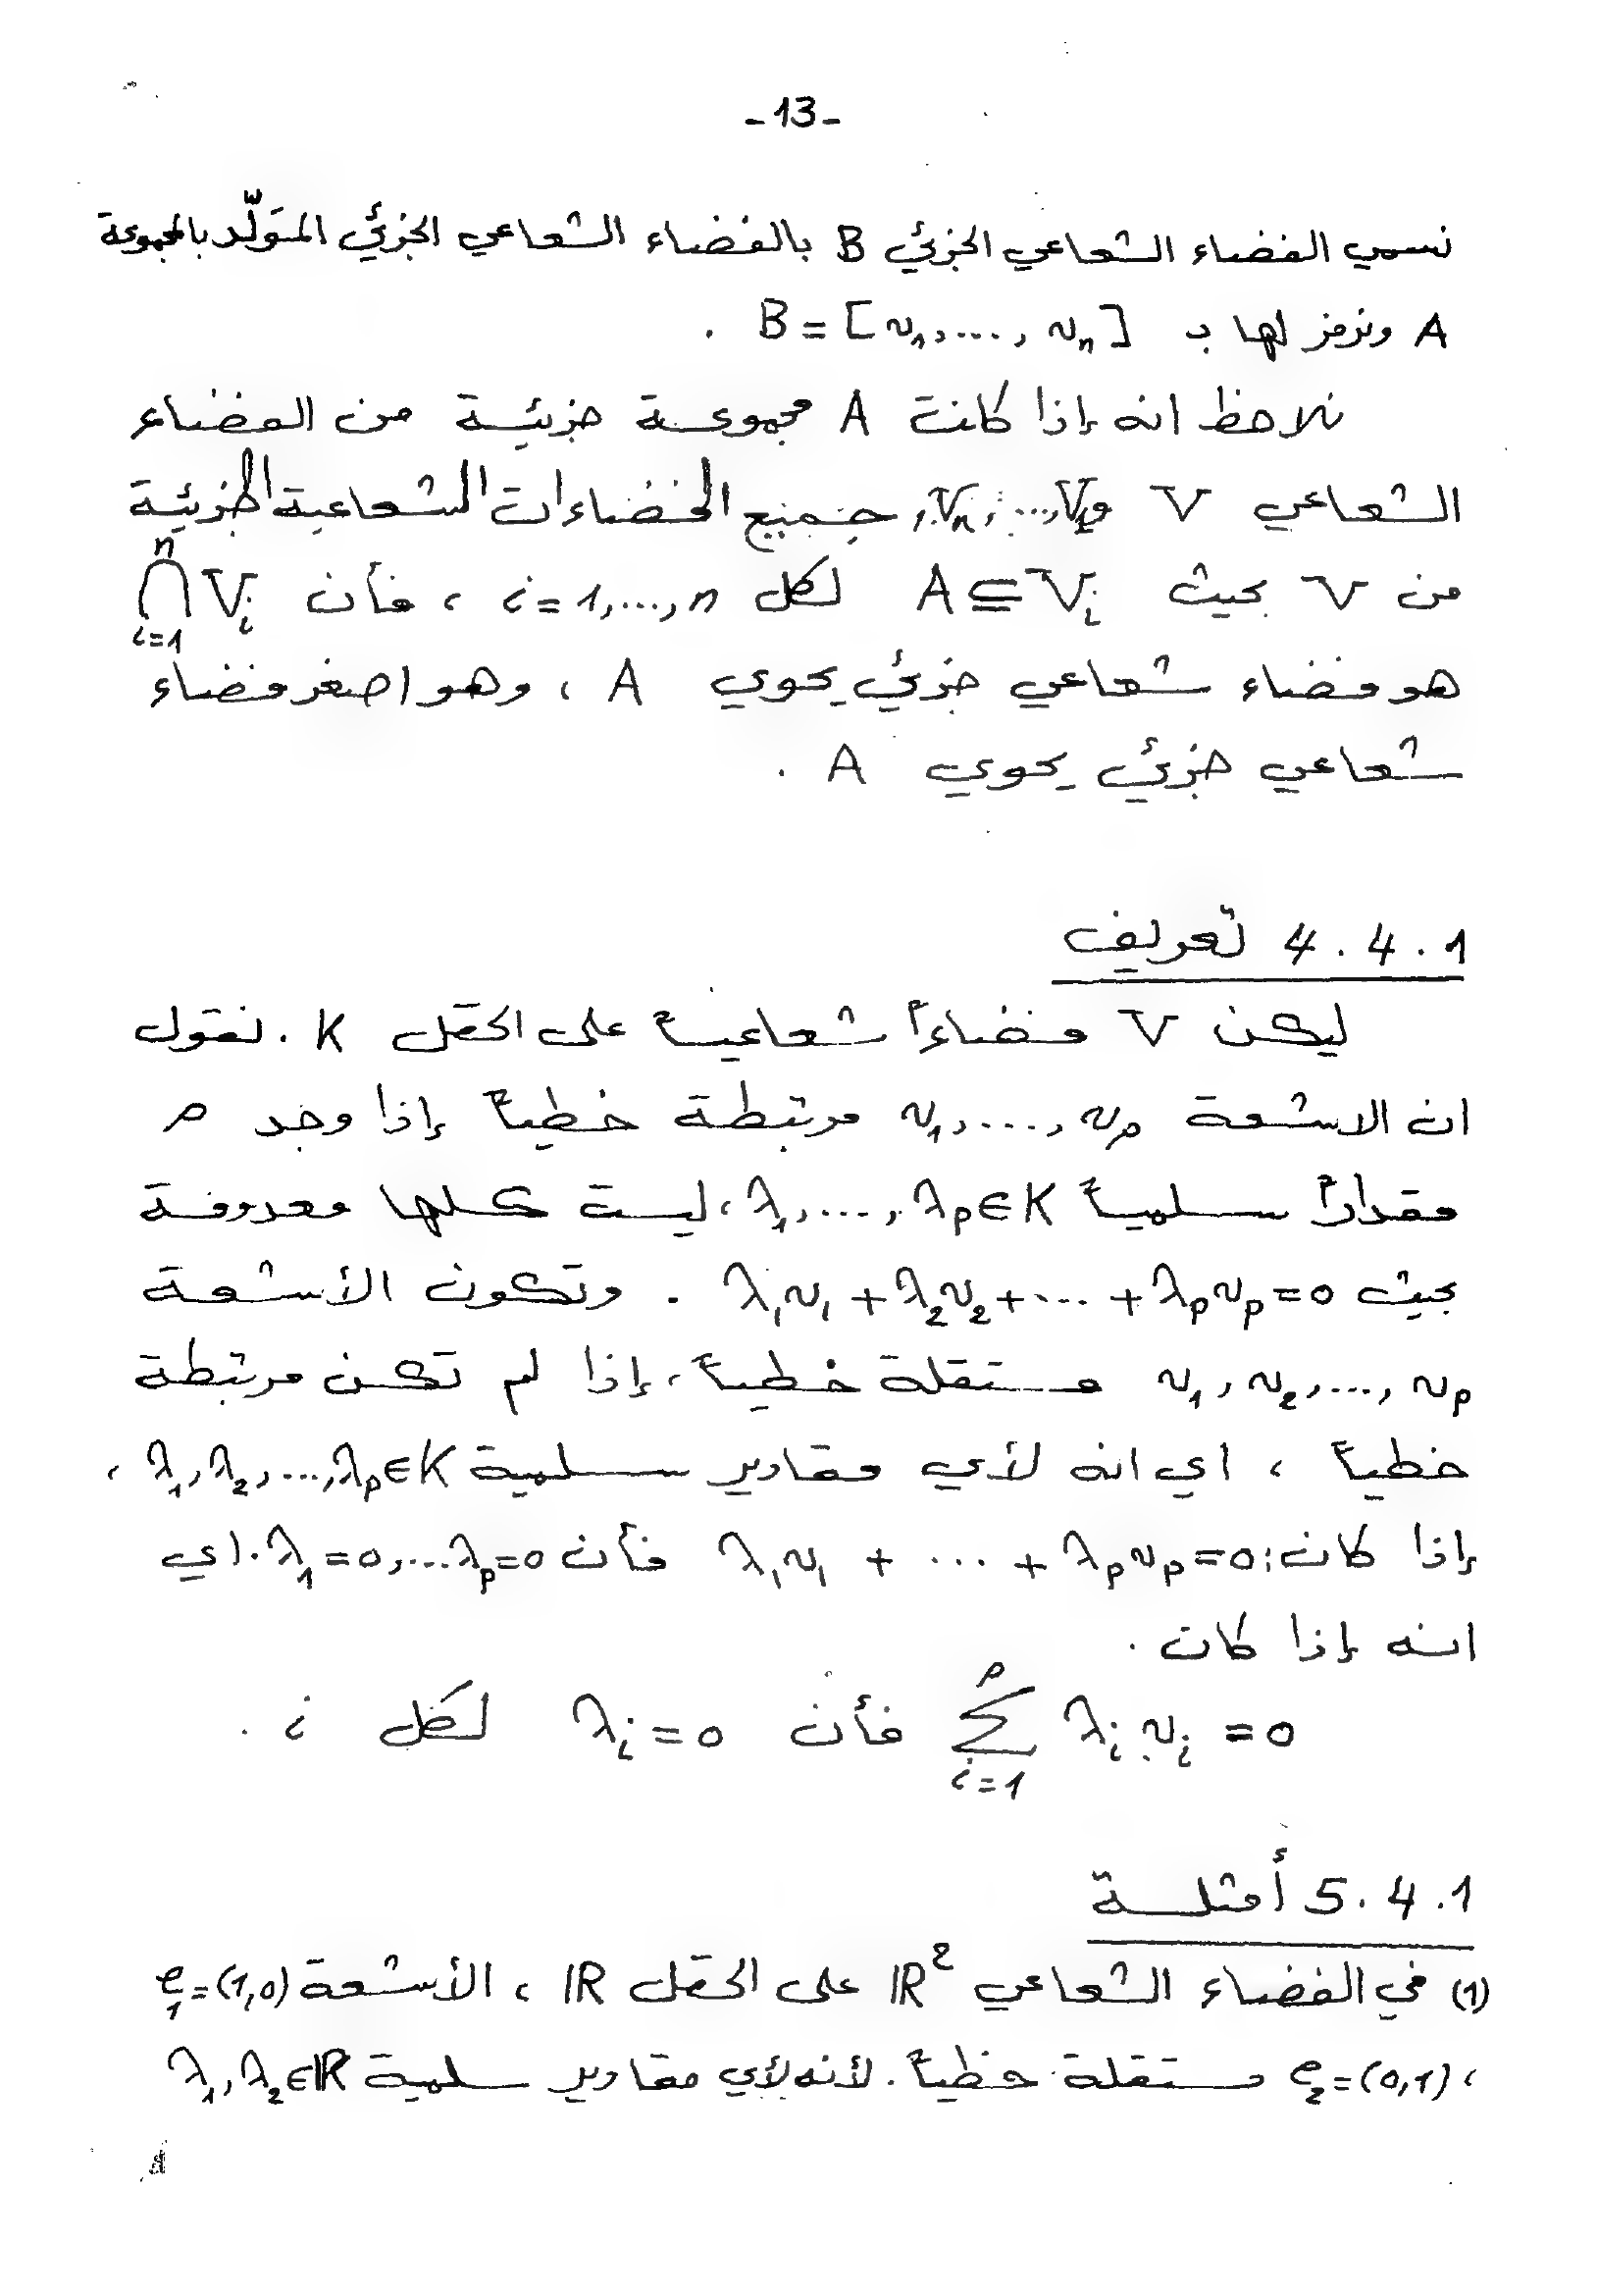 -13-
نسمي الفضاء الشعاعي الجزئي B بالفضاء الشعاعي الجزئي المتولّد بالمجموعة
A ونرمز لها بـ B = [v₁, ..., vₙ] .
نلاحظ انه إذا كانت A مجموعة جزئية من الفضاء
الشعاعي V و V₁, ..., Vₙ, جميع الفضاءات الشعاعية الجزئية
من V بحيث A ⊆ Vᵢ لكل i = 1, ..., n ، فأن ⋂ᵢ₌₁ⁿ Vᵢ
هو فضاء شعاعي جزئي يحوي A ، وهو اصغر فضاء
شعاعي جزئي يحوي A .
4.4.1 تعريف
ليكن V فضاءاً شعاعياً على الحقل K . نقول
ان الاشعة v₁, ..., vₚ مرتبطة خطياً إذا وجد p
مقداراً سلمياً λ₁, ..., λₚ ∈ K ، ليست كلها معدومة
بحيث λ₁v₁ + λ₂v₂ + ... + λₚvₚ = 0 . وتكون الأشعة
v₁, v₂, ..., vₚ مستقلة خطياً ، إذا لم تكن مرتبطة
خطياً ، اي انه لأي مقادير سلمية λ₁, λ₂, ..., λₚ ∈ K ،
إذا كان: λ₁v₁ + ... + λₚvₚ = 0 فأن λ₁ = 0, ... λₚ = 0 . اي
انه إذا كان .
∑ᵢ₌₁ᵖ λᵢ vᵢ = 0 فأن λᵢ = 0 لكل i .
5.4.1 أمثلة
(1) في الفضاء الشعاعي ℝ² على الحقل ℝ ، الأشعة e₁ = (1,0)
، e₂ = (0,1) مستقلة خطياً . لأنه لأي مقادير سلمية λ₁, λ₂ ∈ ℝ